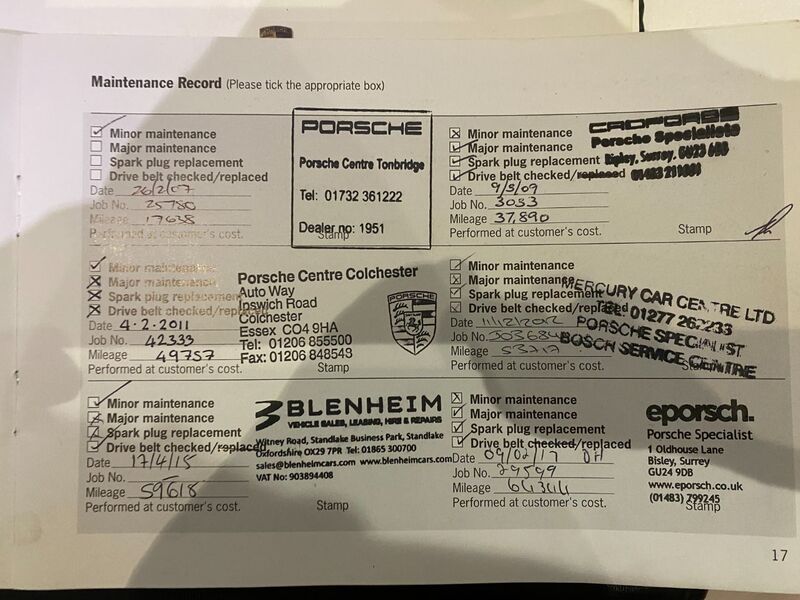 Maintenance Record (Please tick the appropriate box)
Minor maintenance
Major maintenance
Spark plug replacement
Drive belt checked/replaced
Date 26/2/07
Job No. 25780
Mileage 17638
Performed at customer's cost.
Stamp
PORSCHE
Porsche Centre Tonbridge
Tel: 01732 361222
Dealer no: 1951
Minor maintenance
Major maintenance
Spark plug replacement
Drive belt checked/replaced
Date 9/5/09
Job No. 3033
Mileage 37,890
Performed at customer's cost.
Stamp
Porsche Specialists
Ripley, Surrey, GU23 6BB
Minor maintenance
Major maintenance
Spark plug replacement
Drive belt checked/replaced
Date 4.2.2011
Job No. 42333
Mileage 49757
Performed at customer's cost.
Stamp
Porsche Centre Colchester
Auto Way
Ipswich Road
Colchester
Essex CO4 9HA
Tel: 01206 855500
Fax: 01206 848543
PORSCHE
Minor maintenance
Major maintenance
Spark plug replacement
Drive belt checked/replaced
Date 11/12/2012
Job No.
Mileage 53717
Performed at customer's cost.
Stamp
MERCURY CAR CENTRE LTD
TEL: 01277 262233
PORSCHE SPECIALIST
BOSCH SERVICE CENTRE
Minor maintenance
Major maintenance
Spark plug replacement
Drive belt checked/replaced
Date 17/4/15
Job No. -
Mileage 59618
Performed at customer's cost.
Stamp
BLENHEIM
VEHICLE SALES, LEASING, HIRE & REPAIRS
Witney Road, Standlake Business Park, Standlake
Oxfordshire OX29 7PR Tel: 01865 300700
sales@blenheimcars.com www.blenheimcars.com
VAT No: 903894408
Minor maintenance
Major maintenance
Spark plug replacement
Drive belt checked/replaced
Date 09/02/17 DH
Job No. 29599
Mileage 64344
Performed at customer's cost.
Stamp
eporsch.
Porsche Specialist
1 Oldhouse Lane
Bisley, Surrey
GU24 9DB
www.eporsch.co.uk
(01483) 799245
17